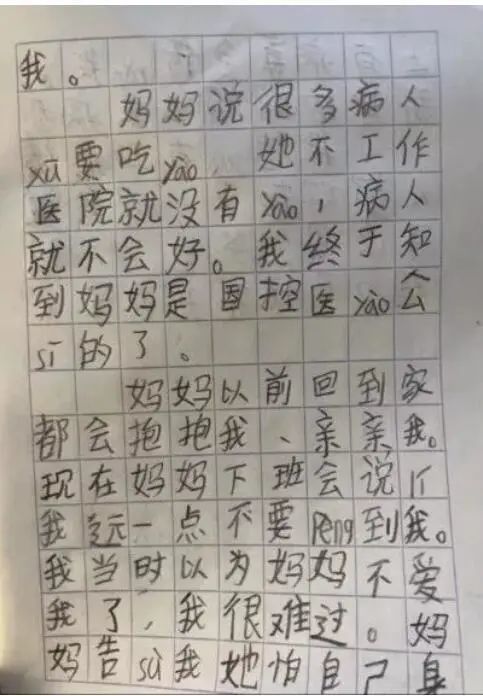 我。
妈妈说很多病人
xū要吃yào，她不工作
医院就没有yào，病人
就不会好。我终于知
到妈妈是国控医yào公
sī的了。
妈妈以前回到家
都会抱抱我、亲亲我。
现在妈妈下班会说
我远一点不要Pèng到我。
我当时以为妈妈不爱
我了，我很难过。妈
妈告sù我她怕自己身